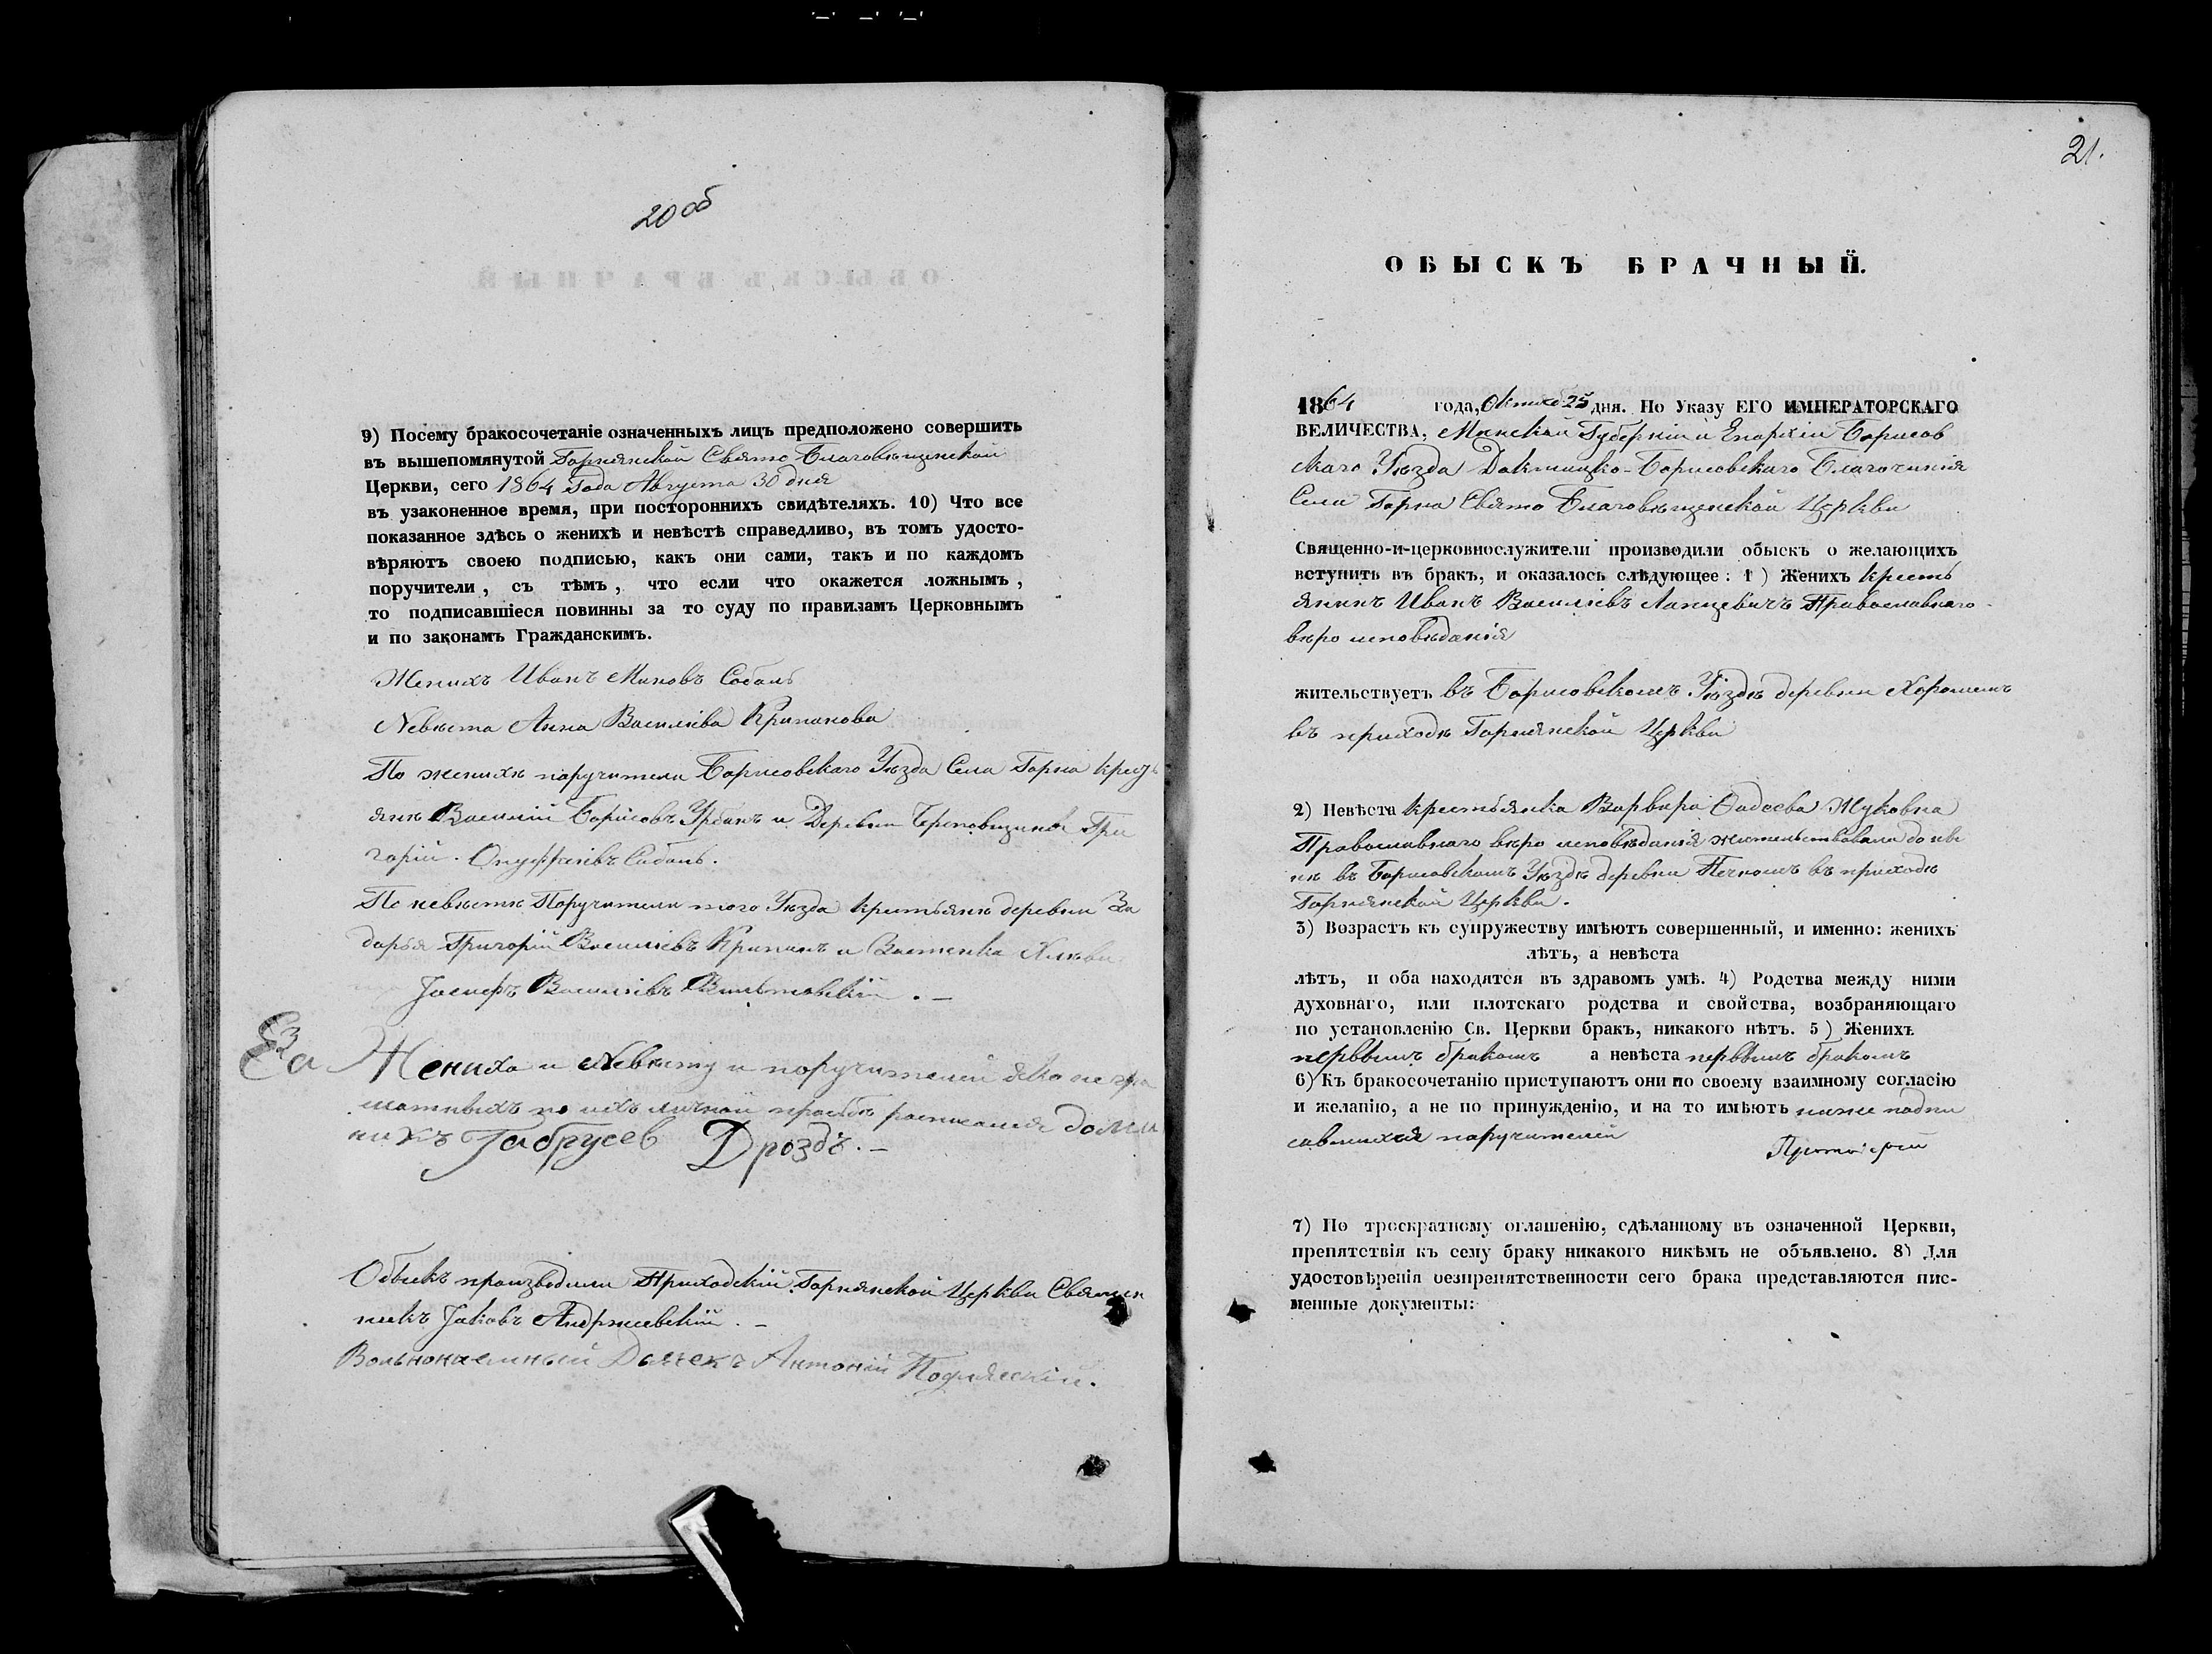 20 об
9) Посему бракосочетаніе означенныхъ лицъ предположено совершить
въ вышепомянутой Горнянской Свято Благовѣщенской
Церкви, сего 1864 Года Августа 30 дня
въ узаконенное время, при постороннихъ свидѣтеляхъ. 10) Что все
показанное здѣсь о женихѣ и невѣстѣ справедливо, въ томъ удосто-
вѣряютъ своею подписью, какъ они сами, такъ и по каждомъ
поручители, съ тѣмъ, что если что окажется ложнымъ,
то подписавшіеся повинны за то суду по правиламъ Церковнымъ
и по законамъ Гражданскимъ.
Женихъ Иванъ Миновъ Собаль
Невѣста Анна Василіева
По женихѣ поручители Борисовскаго Уѣзда Села Горна крест
янѣ Василій Борисовъ Урбанъ и Деревни Гри
горій
По невѣстѣ Поручители того Уѣзда крестьянѣ деревни За
Григорій Василіевъ и Застенка
Іосифъ Василіевъ
За Жениха и Невѣсту и поручителей яко негра
мотныхъ по ихъ личной прозбѣ росписался
Габрусев Дроздъ. –
Обыскъ производили Приходскій Горнянской Церкви Священ
никъ Іаковъ Андржиевскій. –
Вольнонаемный Дьячекъ Антоній
21.
ОБЫСКЪ БРАЧНЫЙ.
1864 года, Октяб 25 дня. По Указу ЕГО ИМПЕРАТОРСКАГО
ВЕЛИЧЕСТВА, Минской Губерніи и Епархіи Борисов
скаго Уѣзда Докшицко-Борисовскаго Благочинія
Села Горна Свято Благовѣщенской Церкви
Священно-и-церковнослужители производили обыскъ о желающихъ
вступить въ бракъ, и оказалось слѣдующее: 1) Женихъ Кресть
янинъ Иванъ Василіевъ Лапцевичъ Православнаго
вѣро исповѣданія
жительствуетъ въ Борисовскомъ Уѣздѣ деревни
въ приходѣ Горнянской Церкви
2) Невѣста крестьянка Варвара Фадеева Жуковна
Православнаго вѣро исповѣданія жительствовала до нын
нѣ въ Борисовскомъ Уѣздѣ деревни въ приходѣ
Горнянской Церкви.
3) Возрастъ къ супружеству имѣютъ совершенный, и именно: женихъ
лѣтъ, а невѣста
лѣтъ, и оба находятся въ здравомъ умѣ. 4) Родства между ними
духовнаго, или плотскаго родства и свойства, возбраняющаго
по установленію Св. Церкви бракъ, никакого нѣтъ. 5) Женихъ
первымъ бракомъ а невѣста первымъ бракомъ
6) Къ бракосочетанію приступаютъ они по своему взаимному согласію
и желанію, а не по принужденію, и на то имѣютъ ниже подпи
савшихся поручителей
7) По троекратному оглашенію, сдѣланному въ означенной Церкви,
препятствія къ сему браку никакого никѣмъ не объявлено. 8) Для
удостовѣренія безпрепятственности сего брака представляются пис-
менные документы: